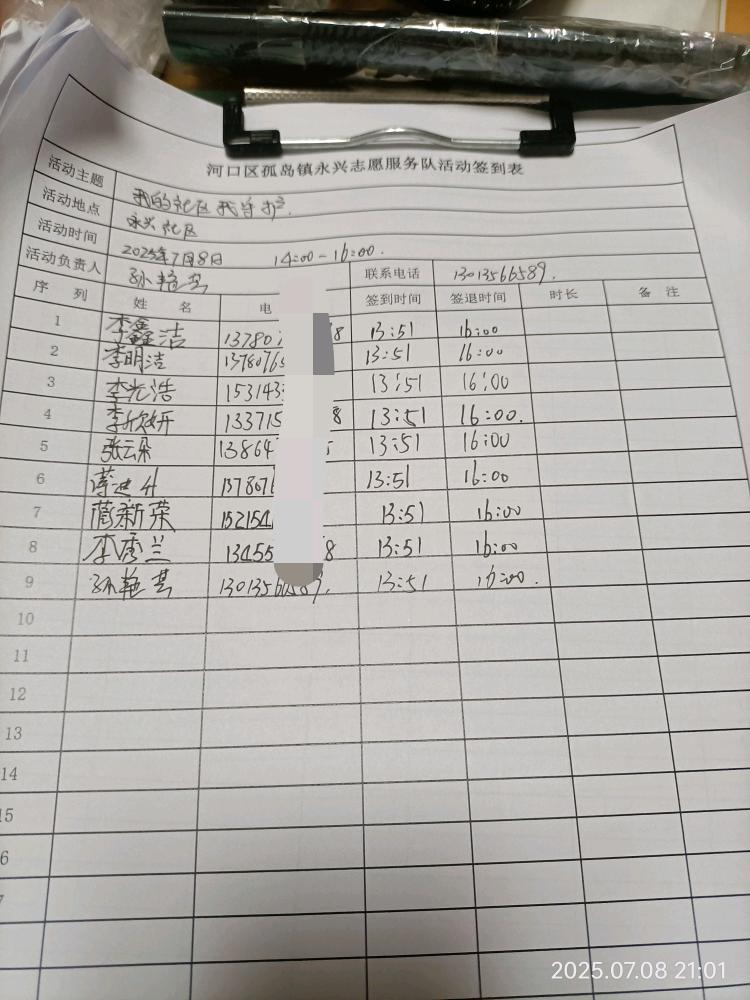 河口区孤岛镇永兴志愿服务队活动签到表
活动主题 我的社区我守护.
活动地点 永兴社区
活动时间 2025年7月8日 14:00-16:00.
活动负责人 联系电话 13013566589.
序 列 姓 名 电 签到时间 签退时间 时长 备 注
1 李鑫洁 13780 8 13:51 16:00
2 李明洁 1378076 13:51 16:00
3 李光浩 153143 13:51 16:00
4 李欣妍 133715 8 13:51 16:00.
5 张云朵 13864 13:51 16:00
6 13780 13:51 16:00
7 蔺新荣 152154 13:51 16:00
8 李秀兰 13455 8 13:51 16:00
9 130135 13:51 16:00.
10
11
12
13
14
15
6
7
2025.07.08 21:01